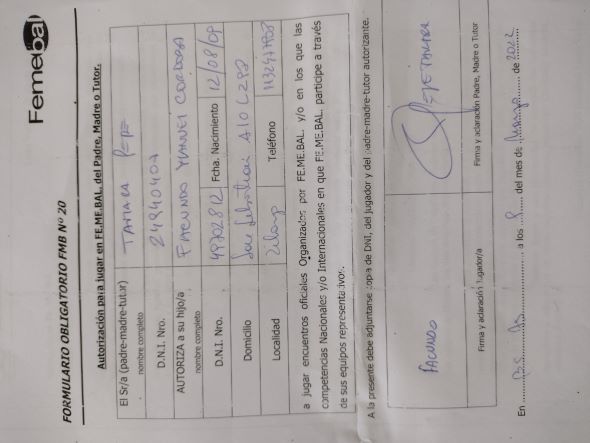 Femebal
FORMULARIO OBLIGATORIO FMB Nº 20
Autorización para jugar en FE.ME.BAL. del Padre, Madre o Tutor.
El Sr/a (padre-madre-tutor) TAMARA PEPE
nombre completo
D.N.I. Nro. 24940407
AUTORIZA a su hijo/a FACUNDO YHANNEI CORDOBA
nombre completo
D.N.I. Nro. 49702812 Fcha. Nacimiento 12/08/09
Domicilio San Sebastian A10 C292
Localidad Zelaya Teléfono
a jugar encuentros oficiales Organizados por FE.ME.BAL. y/o en los que las
competencias Nacionales y/o Internacionales en que FE.ME.BAL. participe a través
de sus equipos representativos.
A la presente debe adjuntarse copia de DNI, del jugador y del padre-madre-tutor autorizante.
FACUNDO PEPE TAMARA
Firma y aclaración Jugador/a Firma y aclaración Padre, Madre o Tutor
En Bs As a los 8 del mes de Marzo de 2022